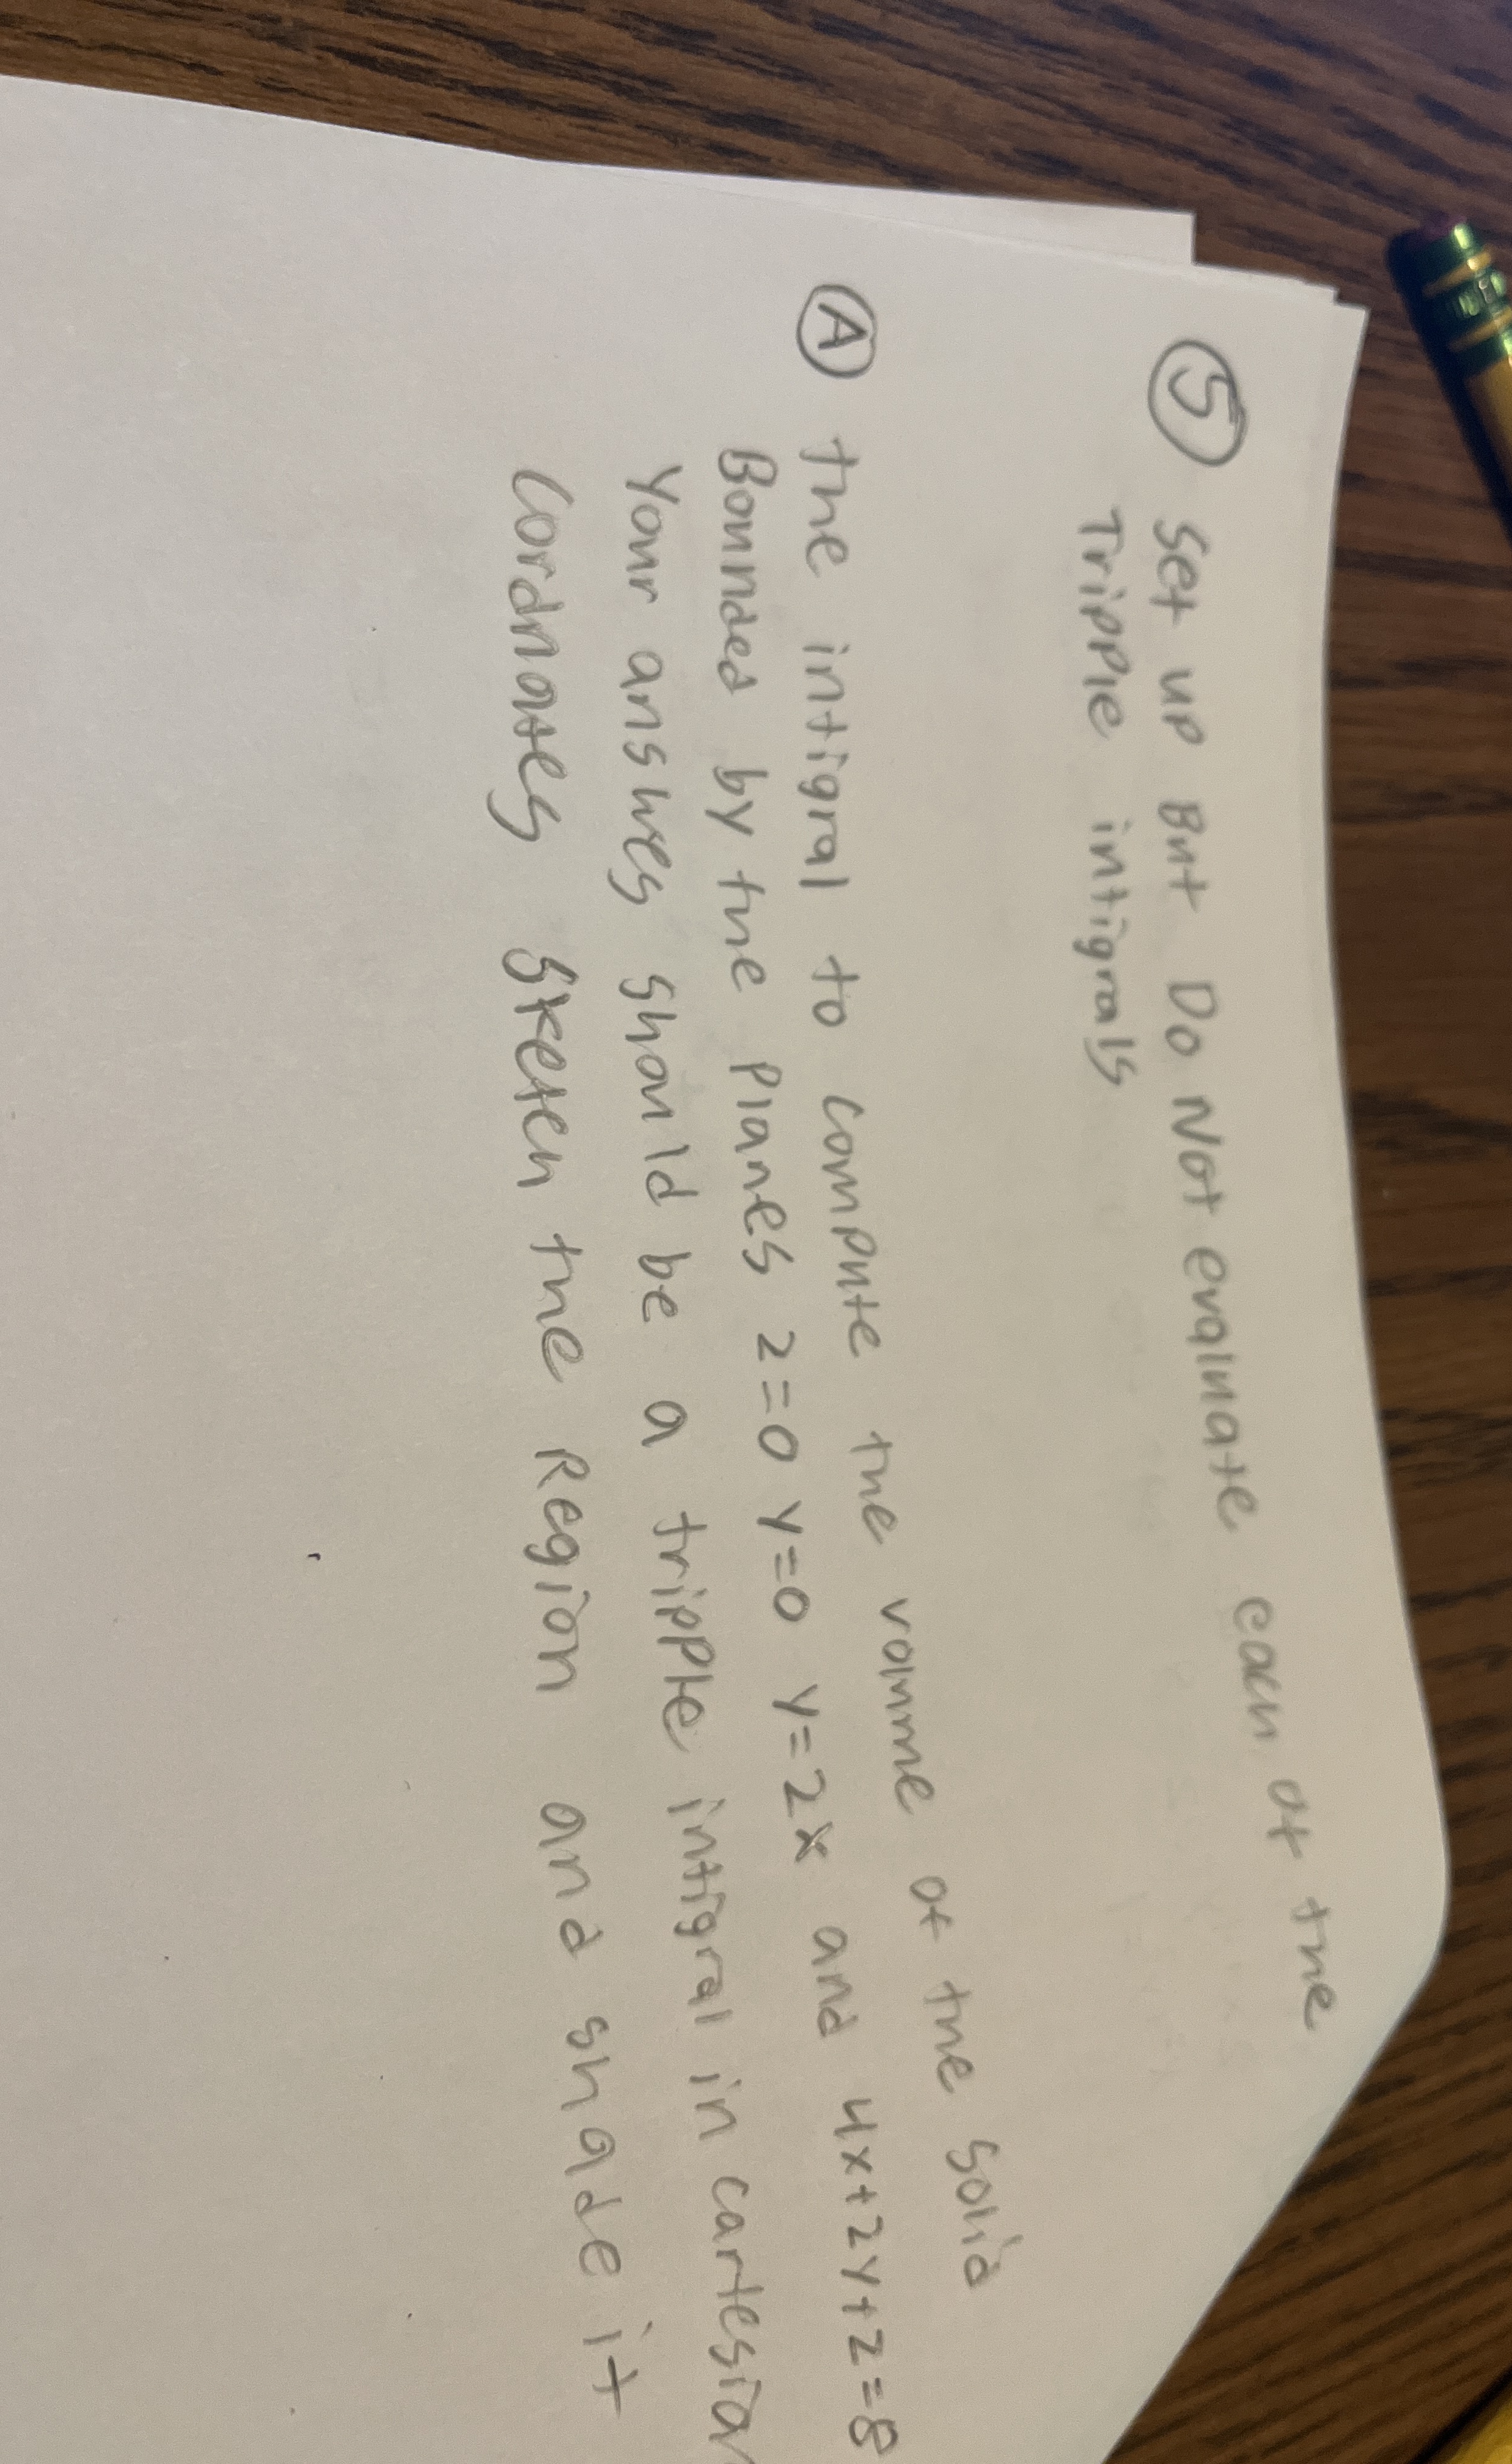 5 Set up But Do Not evaluate each of the
Tripple intigrals
A the intigral to compute the volume of the solid
Bounded by the Planes z=0 y=0 y=2x and 4x+2y+z=8
Your answes should be a tripple intigral in cartesian
Cordnates sketch the Region and shade it